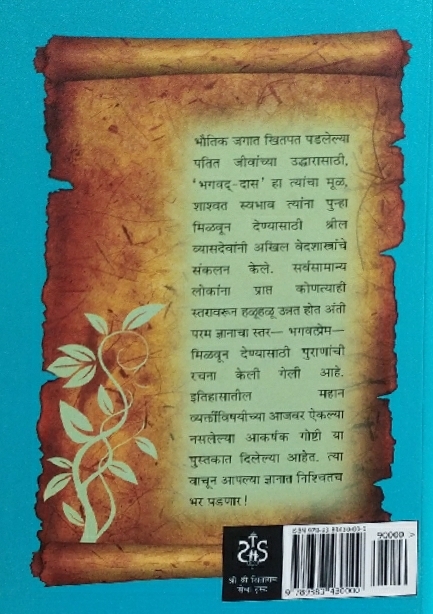 भौतिक जगात खितपत पडलेल्या
पतित जीवांच्या उद्धारासाठी,
'भगवद्-दास' हा त्यांचा मूळ,
शाश्वत स्वभाव त्यांना पुन्हा
मिळवून देण्यासाठी श्रील
व्यासदेवांनी अखिल वेदशास्त्रांचे
संकलन केले. सर्वसामान्य
लोकांना प्राप्त कोणत्याही
स्तरावरून हळूहळू उन्नत होत अंती
परम ज्ञानाचा स्तर— भगवत्प्रेम—
मिळवून देण्यासाठी पुराणांची
रचना केली गेली आहे.
इतिहासातील महान
व्यक्तींविषयीच्या आजवर ऐकल्या
नसलेल्या आकर्षक गोष्टी या
पुस्तकात दिलेल्या आहेत. त्या
वाचून आपल्या ज्ञानात निश्चितच
भर पडणार!
90000 >
9 789383 430000